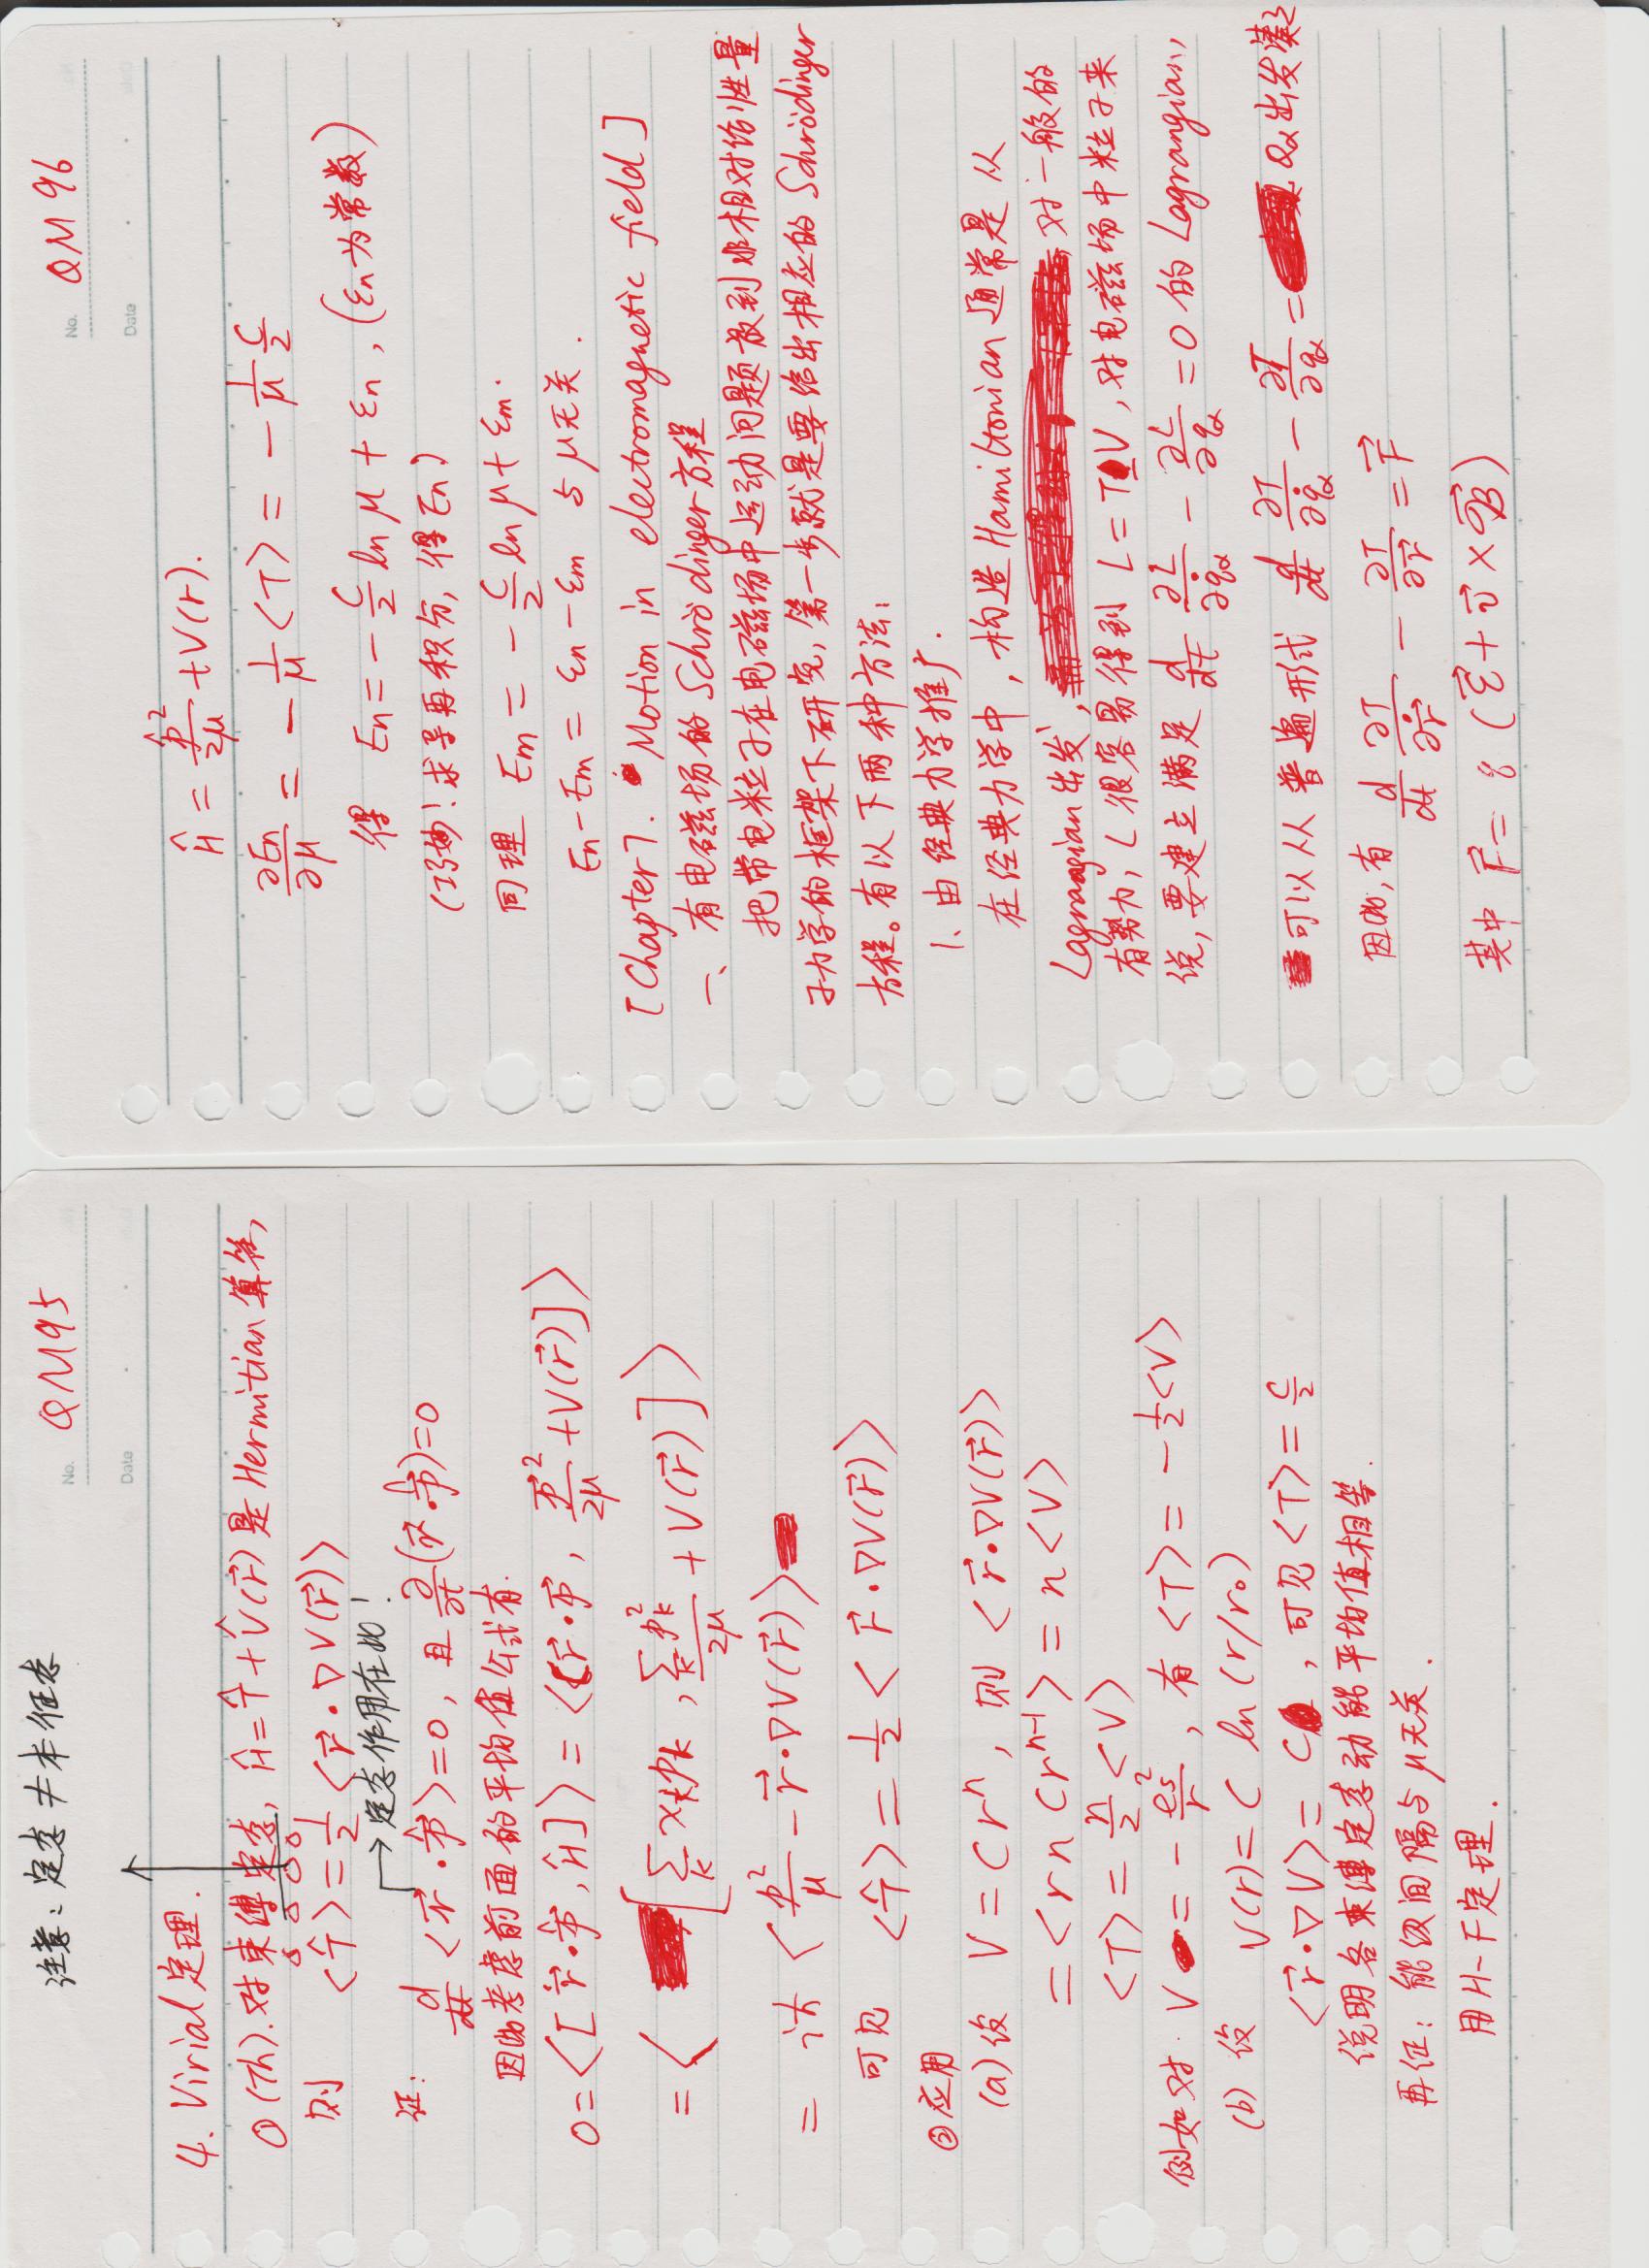 注意：定态≠本征态
QM95
No.
Date
4. Virial 定理.
①(Th). 对束缚定态, Ĥ=T̂+V̂(r⃗) 是 Hermitian 算符,
则 <T̂>=1/2<r⃗·∇V(r⃗)>
定态作用在此!
证: d/dt<r⃗·p̂⃗>=0, 且 ∂/∂t(r⃗·p̂⃗)=0
因此考虑前面的平均值公式有.
0=<[r⃗·p̂⃗, Ĥ]>=<[r⃗·p⃗, p⃗²/2μ+V(r⃗)]>
=<[∑k xkpk, ∑k pk²/2μ+V(r⃗)]>
= iħ<p²/μ-r⃗·∇V(r⃗)>
可见 <T̂>=1/2<r⃗·∇V(r⃗)>
②应用
(a)设 V=Crⁿ, 则<r⃗·∇V(r⃗)>
=<rnCrⁿ⁻¹>=n<V>
<T>=n/2<V>
例如对. V=-es²/r, 有<T>=-1/2<V>
(b) 设 V(r)=C ln(r/r₀)
<r⃗·∇V>=C, 可见<T>=C/2
说明各束缚定态动能平均值相等.
再证: 能级间隔与μ无关.
用H-F定理.
QM96
No.
Date
Ĥ=p̂²/2μ+V(r).
∂En/∂μ=-1/μ<T>=-1/μ C/2
得 En=-C/2 lnμ+εn, (εn为常数)
(巧妙! 求导再积分, 得En)
同理 Em=-C/2 lnμ+εm.
En-Em=εn-εm 与μ无关.
[Chapter 7. Motion in electromagnetic field]
一、有电磁场的Schrödinger方程
把带电粒子在电磁场中运动问题放到非相对论性量
子力学的框架下研究, 第一步就是要给出相应的Schrödinger
方程。有以下两种方法:
1. 由经典力学推广.
在经典力学中, 构造Hamiltonian通常是从
Lagrangian出发, 对一般的
有势力, L很容易得到 L=T-V, 对电磁场中粒子来
说, 要建立满足 d/dt ∂L/∂q̇α-∂L/∂qα=0 的Lagrangian,
可以从普遍形式 d/dt ∂T/∂q̇α-∂T/∂qα=Qα出发凑之
因此, 有 d/dt ∂T/∂ṙ⃗-∂T/∂r⃗=F⃗
其中 F⃗=q(ℰ⃗+v⃗×ℬ⃗)